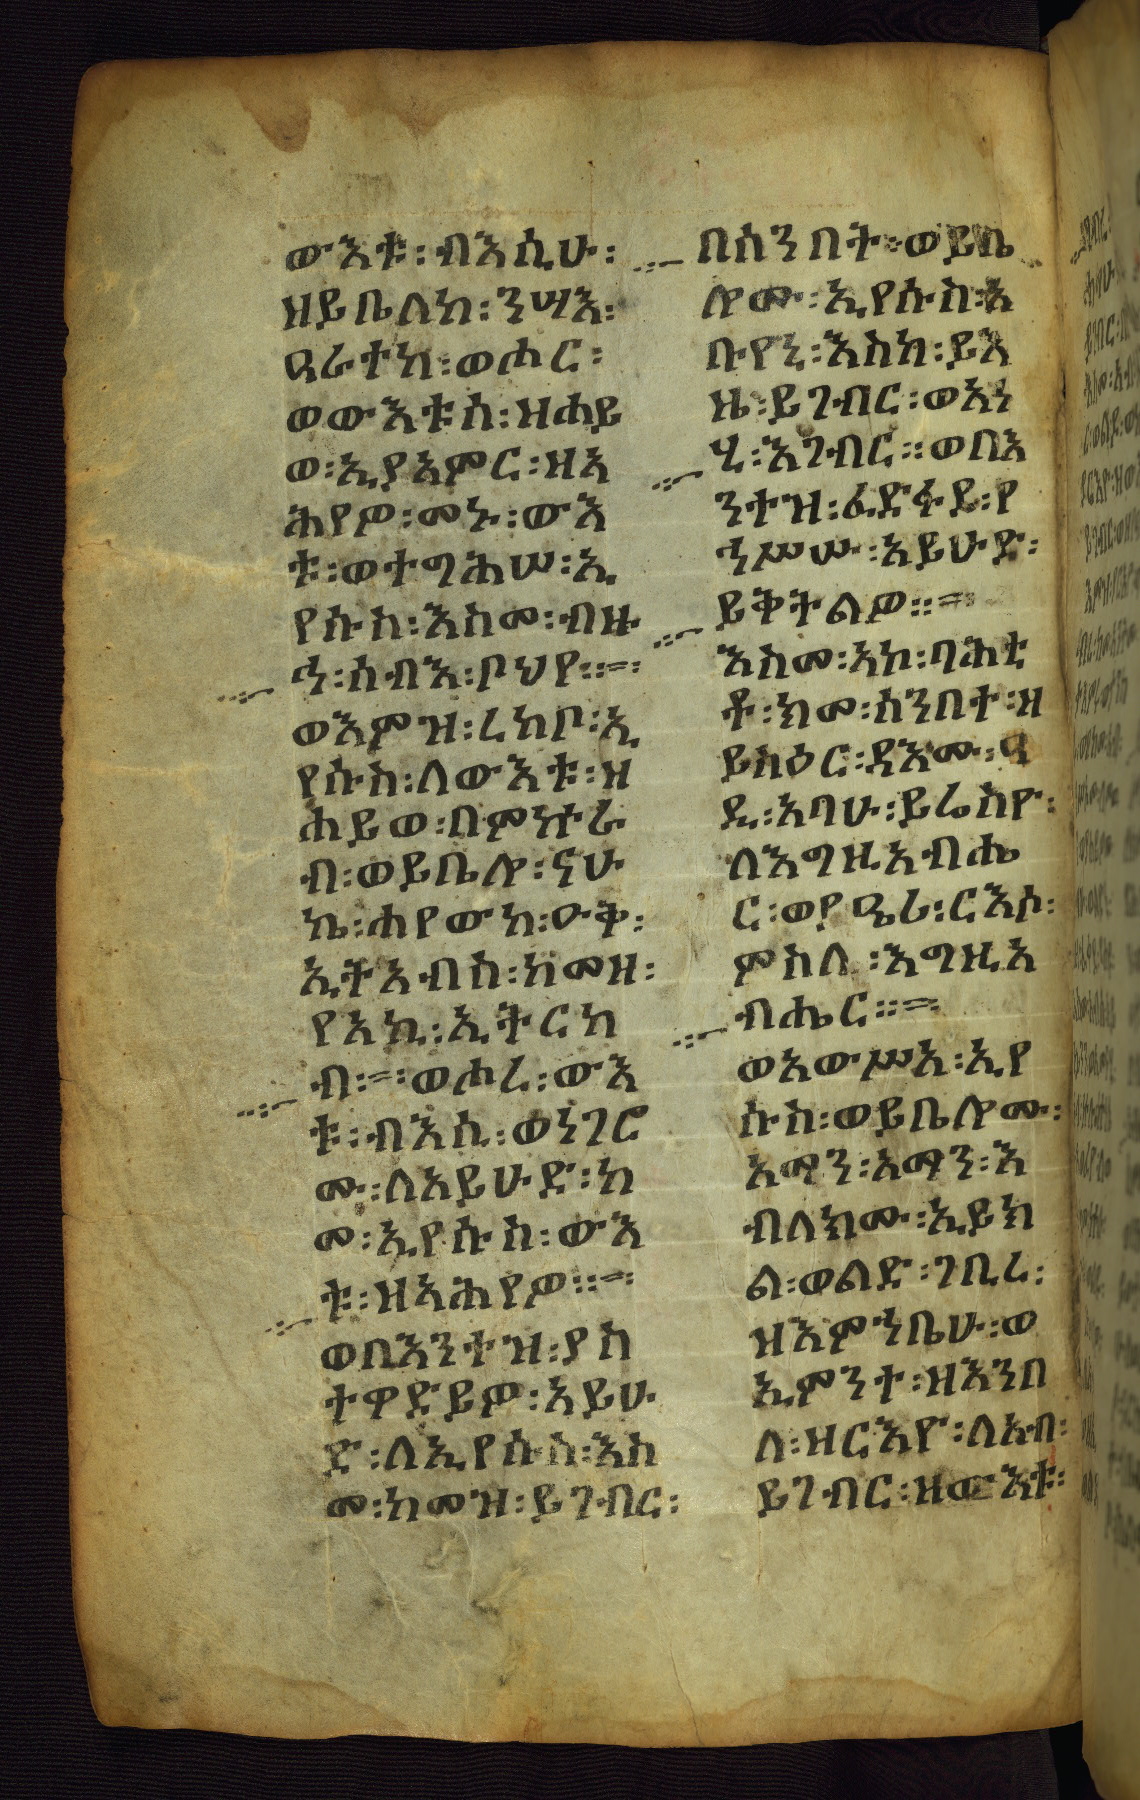 ውእቱ፡ብእሲሁ፡
ዘይቤለከ፡ንሣእ፡
ዓራተከ፡ወሑር፡
ወውእቱሰ፡ዝሐይ
ወ፡ኢያአምር፡ዘአ
ሕየዎ፡መኑ፡ውእ
ቱ፡ወተግሕሠ፡ኢ
የሱስ፡እስመ፡ብዙ
ኅ፡ሰብእ፡ቦህየ፡፡=፡
ወእምዝ፡ረከቦ፡ኢ
የሱስ፡ለውእቱ፡ዝ
ሐይወ፡በምኵራ
ብ፡ወይቤሎ፡ናሁ
ኬ፡ሐየውከ፡ዑቅ፡
ኢትአብስ፡ከመዘ፡
የአኪ፡ኢትርከ
ብ፡=፡ወሖረ፡ውእ
ቱ፡ብእሲ፡ወነገሮ
ሙ፡ለአይሁድ፡ከ
መ፡ኢየሱስ፡ውእ
ቱ፡ዘአሕየዎ፡፡=፡
ወበእንተዝ፡ያስ
ተዋድይዎ፡አይሁ
ድ፡ለኢየሱስ፡እስ
መ፡ከመዝ፡ይገብር፡
በሰንበት፡ወይቤ
ሎሙ፡ኢየሱስ፡አ
ቡየኒ፡እስከ፡ይእ
ዜ፡ይገብር፡ወአነ
ሂ፡እገብር፡፡ወበእ
ንተዝ፡ፈድፋደ፡የ
ኀሥሡ፡አይሁድ፡
ይቅትልዎ፡፡=፡
እስመ፡አኮ፡ባሕቲ
ቶ፡ክመ፡ሰንበተ፡ዘ
ይስዕር፡ዳእሙ፡ዓ
ዲ፡አባሁ፡ይሬስዮ፡
ለእግዚአብሔ
ር፡ወያዔሪ፡ርእሶ፡
ምስለ፡እግዚአ
ብሔር፡፡=፡
ወአውሥአ፡ኢየ
ሱስ፡ወይቤሎሙ፡
አማን፡አማን፡እ
ብለክሙ፡ኢይክ
ል፡ወልድ፡ገቢረ፡
ዝእምኀቤሁ፡ወ
ኢምንተ፡ዘእንበ
ለ፡ዘርእዮ፡ለአብ፡
ይገብር፡ዝውእቱ፡